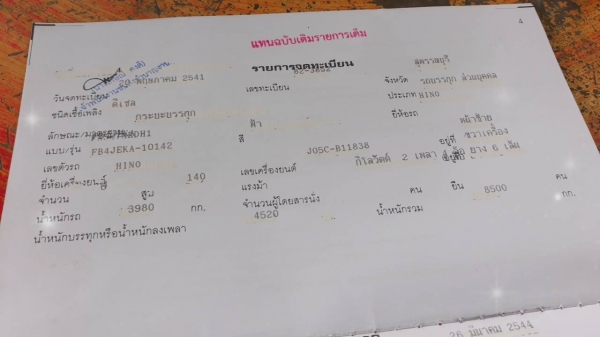 4
แทนฉบับเดิมรายการเดิม
รายการจดทะเบียน
วันจดทะเบียน 20 พฤษภาคม 2541 เลขทะเบียน 82-3892 จังหวัด สุพรรณบุรี
ชนิดเชื้อเพลิง ดีเซล ประเภท รถบรรทุก ส่วนบุคคล
ลักษณะ/มาตรฐาน กระบะบรรทุก สี ฟ้า ยี่ห้อรถ HINO
แบบ/รุ่น
เลขตัวรถ FB4JEKA-10142 อยู่ที่
ยี่ห้อเครื่องยนต์ HINO เลขเครื่องยนต์ J05C-B11838 อยู่ที่ ขวาเครื่อง
จำนวน สูบ 140 แรงม้า กิโลวัตต์ 2 เพลา ล้อ ยาง 6 เส้น
น้ำหนักรถ 3980 กก. จำนวนผู้โดยสารนั่ง คน ยืน คน
น้ำหนักบรรทุกหรือน้ำหนักลงเพลา 4520 น้ำหนักรวม 8500 กก.
26 มีนาคม 2544